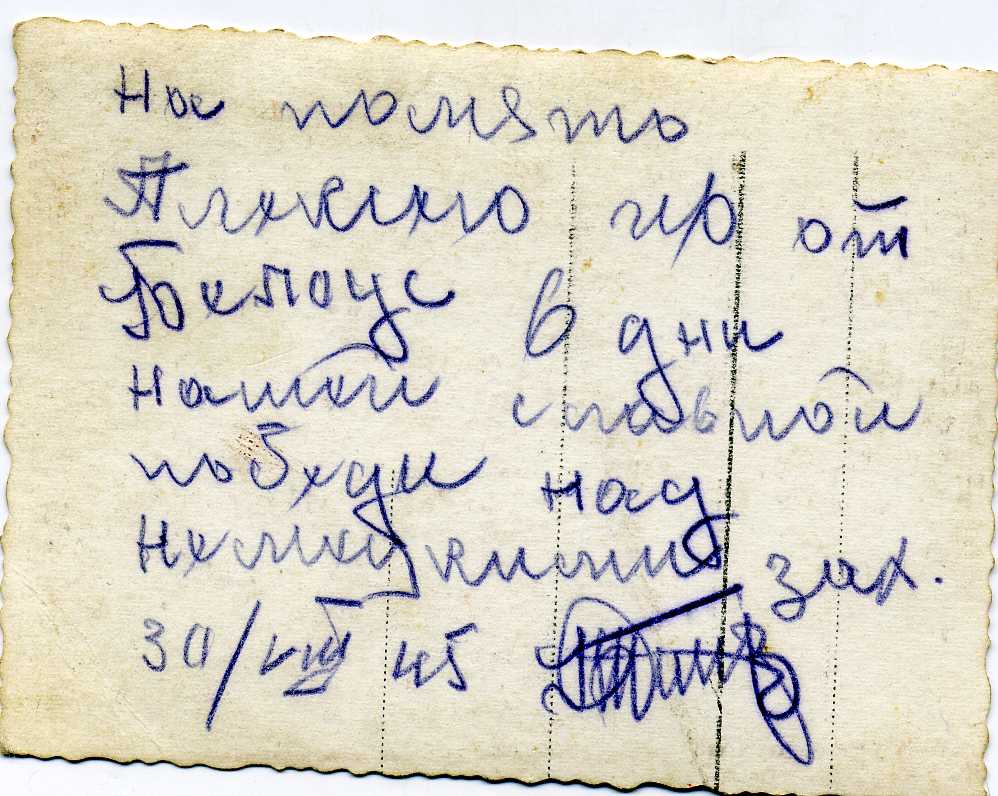 На помято
Плехкехо гр от
Белоус в дни
нашей славной
победи над
Немецкими зах.
30/VIII 45